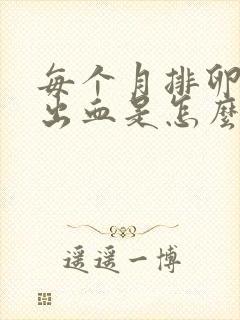 每个月排卵
出血是怎麽
遥遥一博